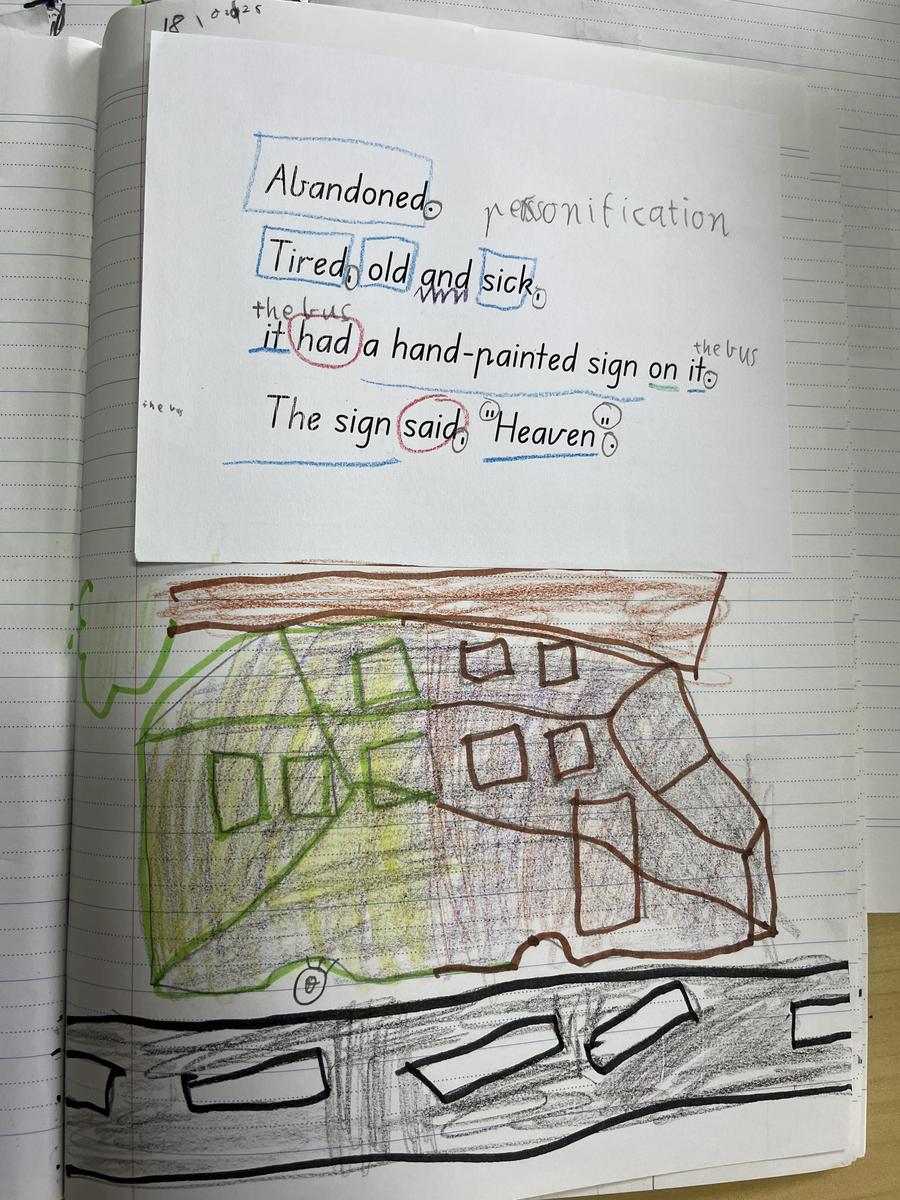 Abandoned.
personification
Tired, old and sick,
the bus
it had a hand-painted sign on it.
the bus
The sign said, "Heaven".
the bus